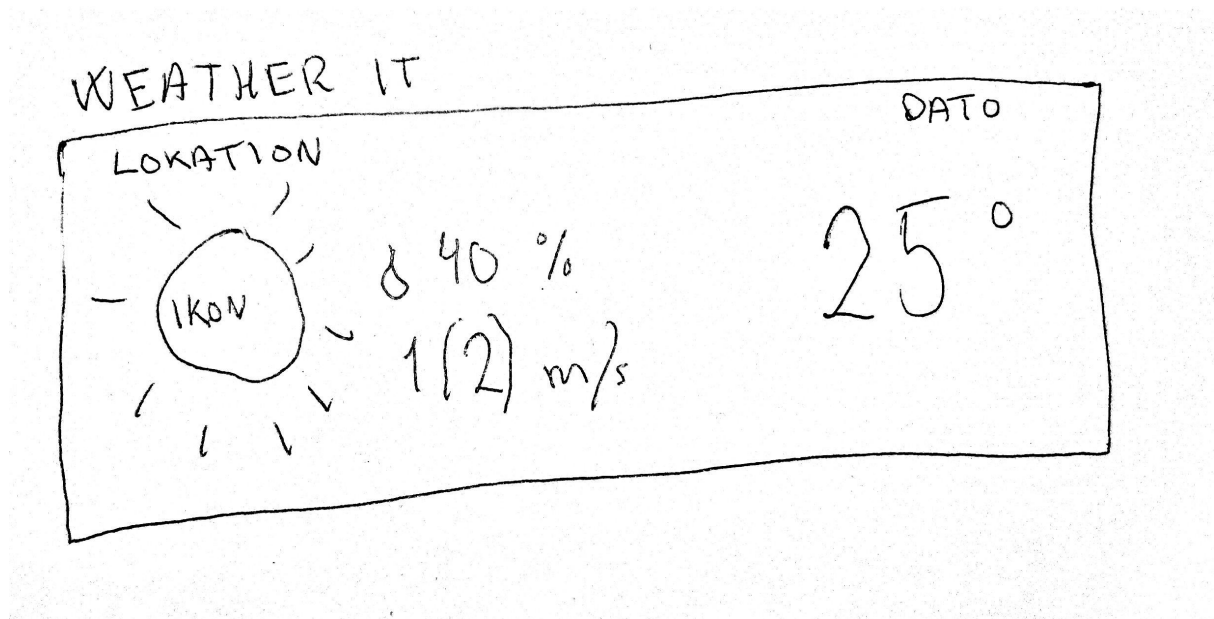 WEATHER IT
LOKATION
DATO
IKON
40 %
25°
1(2) m/s